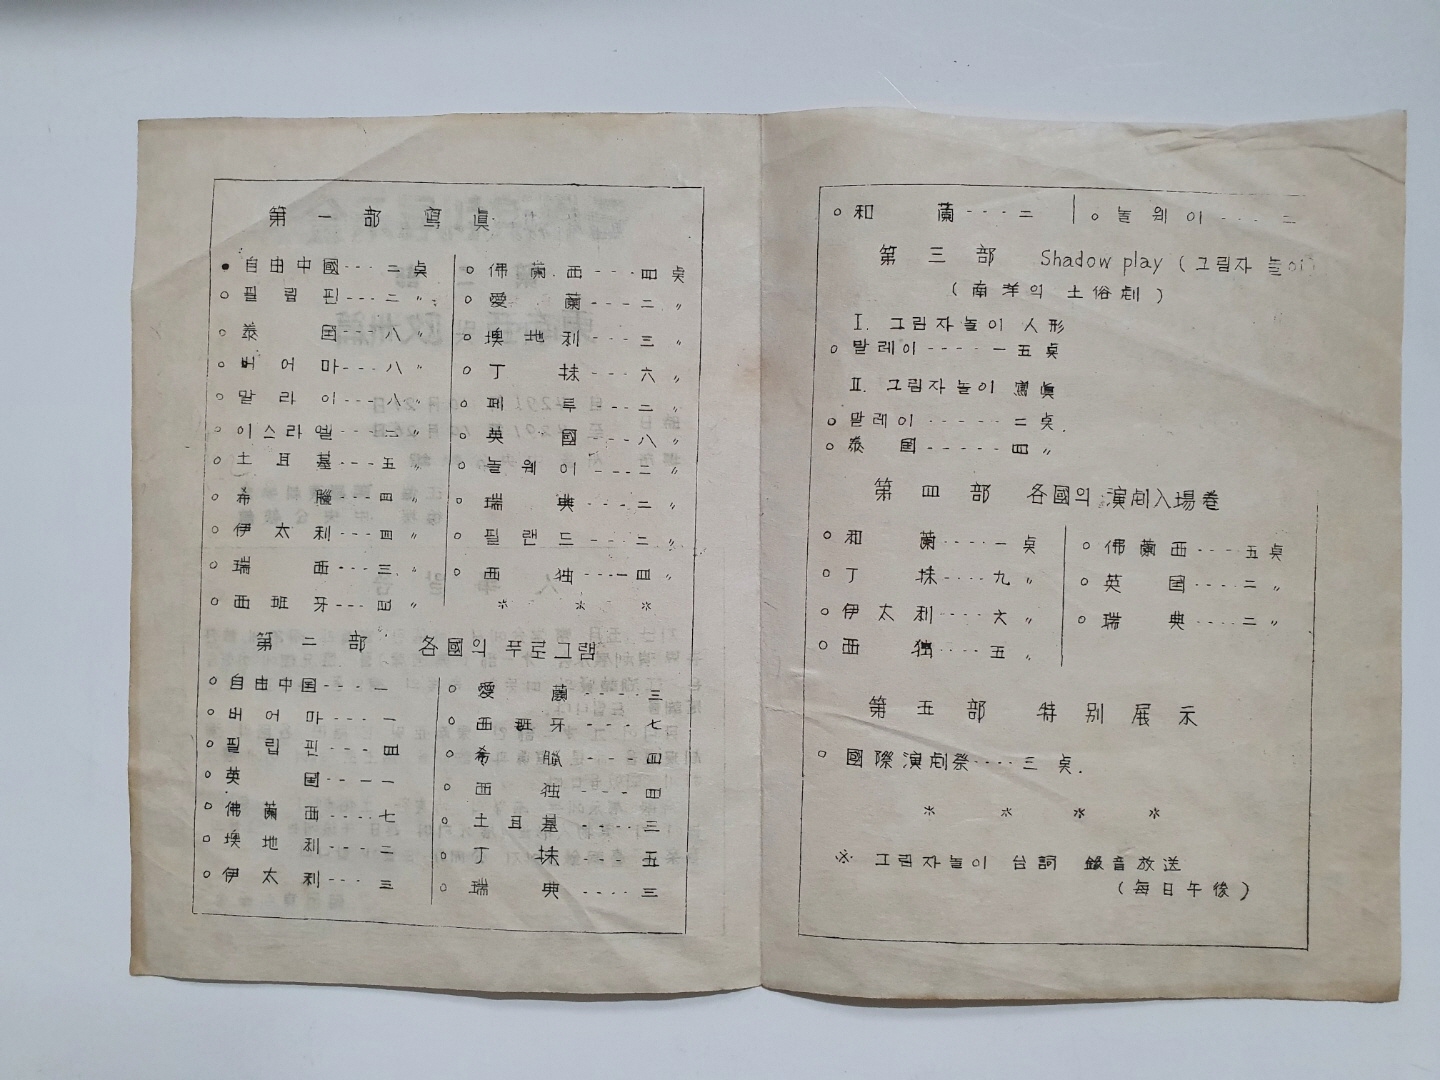 第一部 寫眞
● 自由中國 --- 二点
○ 필립핀 --- 二 〃
○ 泰国 --- 八 〃
○ 버어마 --- 八 〃
○ 말라이 --- 八 〃
○ 이스라엘 --- 二 〃
○ 土耳基 --- 五 〃
○ 希臘 --- 四 〃
○ 伊太利 --- 四 〃
○ 瑞西 --- 三 〃
○ 西班牙 --- 四 〃
○ 佛蘭西 --- 四点
○ 愛蘭 --- 二 〃
○ 墺地利 --- 三 〃
○ 丁抹 --- 六 〃
○ 페루 --- 二 〃
○ 英國 --- 八 〃
○ 놀웨이 --- 二 〃
○ 瑞典 --- 二 〃
○ 필랜드 --- 二 〃
○ 西独 --- 一四 〃
* * *
第二部 各國의 푸로그램
○ 自由中国 --- 一
○ 버어마 --- 一
○ 필립핀 --- 四
○ 英国 --- 一
○ 佛蘭西 --- 七
○ 墺地利 --- 二
○ 伊太利 --- 三
○ 愛蘭 ---- 三
○ 西班牙 ---- 七
○ 希臘 ---- 四
○ 西独 ---- 四
○ 土耳基 ---- 三
○ 丁抹 ---- 五
○ 瑞典 ---- 三
○ 和蘭 ---- 二
○ 놀웨이 ---- 二
第三部 Shadow play (그림자 놀이)
(南洋의 土俗劇)
I. 그림자놀이 人形
○ 말레이 ----- 一五点
II. 그림자놀이 寫眞
○ 말레이 ----- 二点.
○ 泰国 ---- 四 〃
第四部 各國의 演劇入場巻
○ 和蘭 ---- 一点
○ 丁抹 ---- 九 〃
○ 伊太利 ---- 六 〃
○ 西独 ---- 五 〃
○ 佛蘭西 --- 五点
○ 英国 ---- 二 〃
○ 瑞典 --- 二 〃
第五部 特別展示
○ 國際演劇祭 ---- 三点.
* * * *
※ 그림자놀이 台詞 錄音放送
(每日午後)